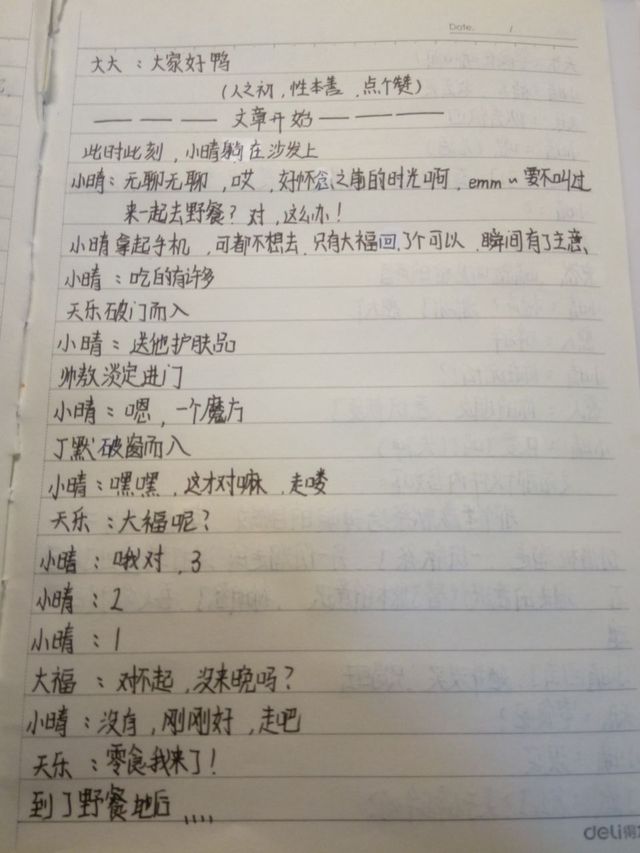 Date. /
大大：大家好鸭
（人之初，性本善，点个赞）
———文章开始———
此时此刻，小晴躺在沙发上
小晴：无聊无聊，哎，好怀念之前的时光啊，emm~要不叫过
来一起去野餐？对，这么办！
小晴拿起手机，可都不想去，只有大福回了个可以，瞬间有了主意
小晴：吃的有许多
天乐破门而入
小晴：送他护肤品
帅敖淡定进门
小晴：嗯，一个魔方
丁默破窗而入
小晴：嘿嘿，这才对嘛，走喽
天乐：大福呢？
小晴：哦对，3
小晴：2
小晴：1
大福：对不起，没来晚吗？
小晴：没有，刚刚好，走吧
天乐：零食我来了！
到了野餐地后，，，，
deli得力